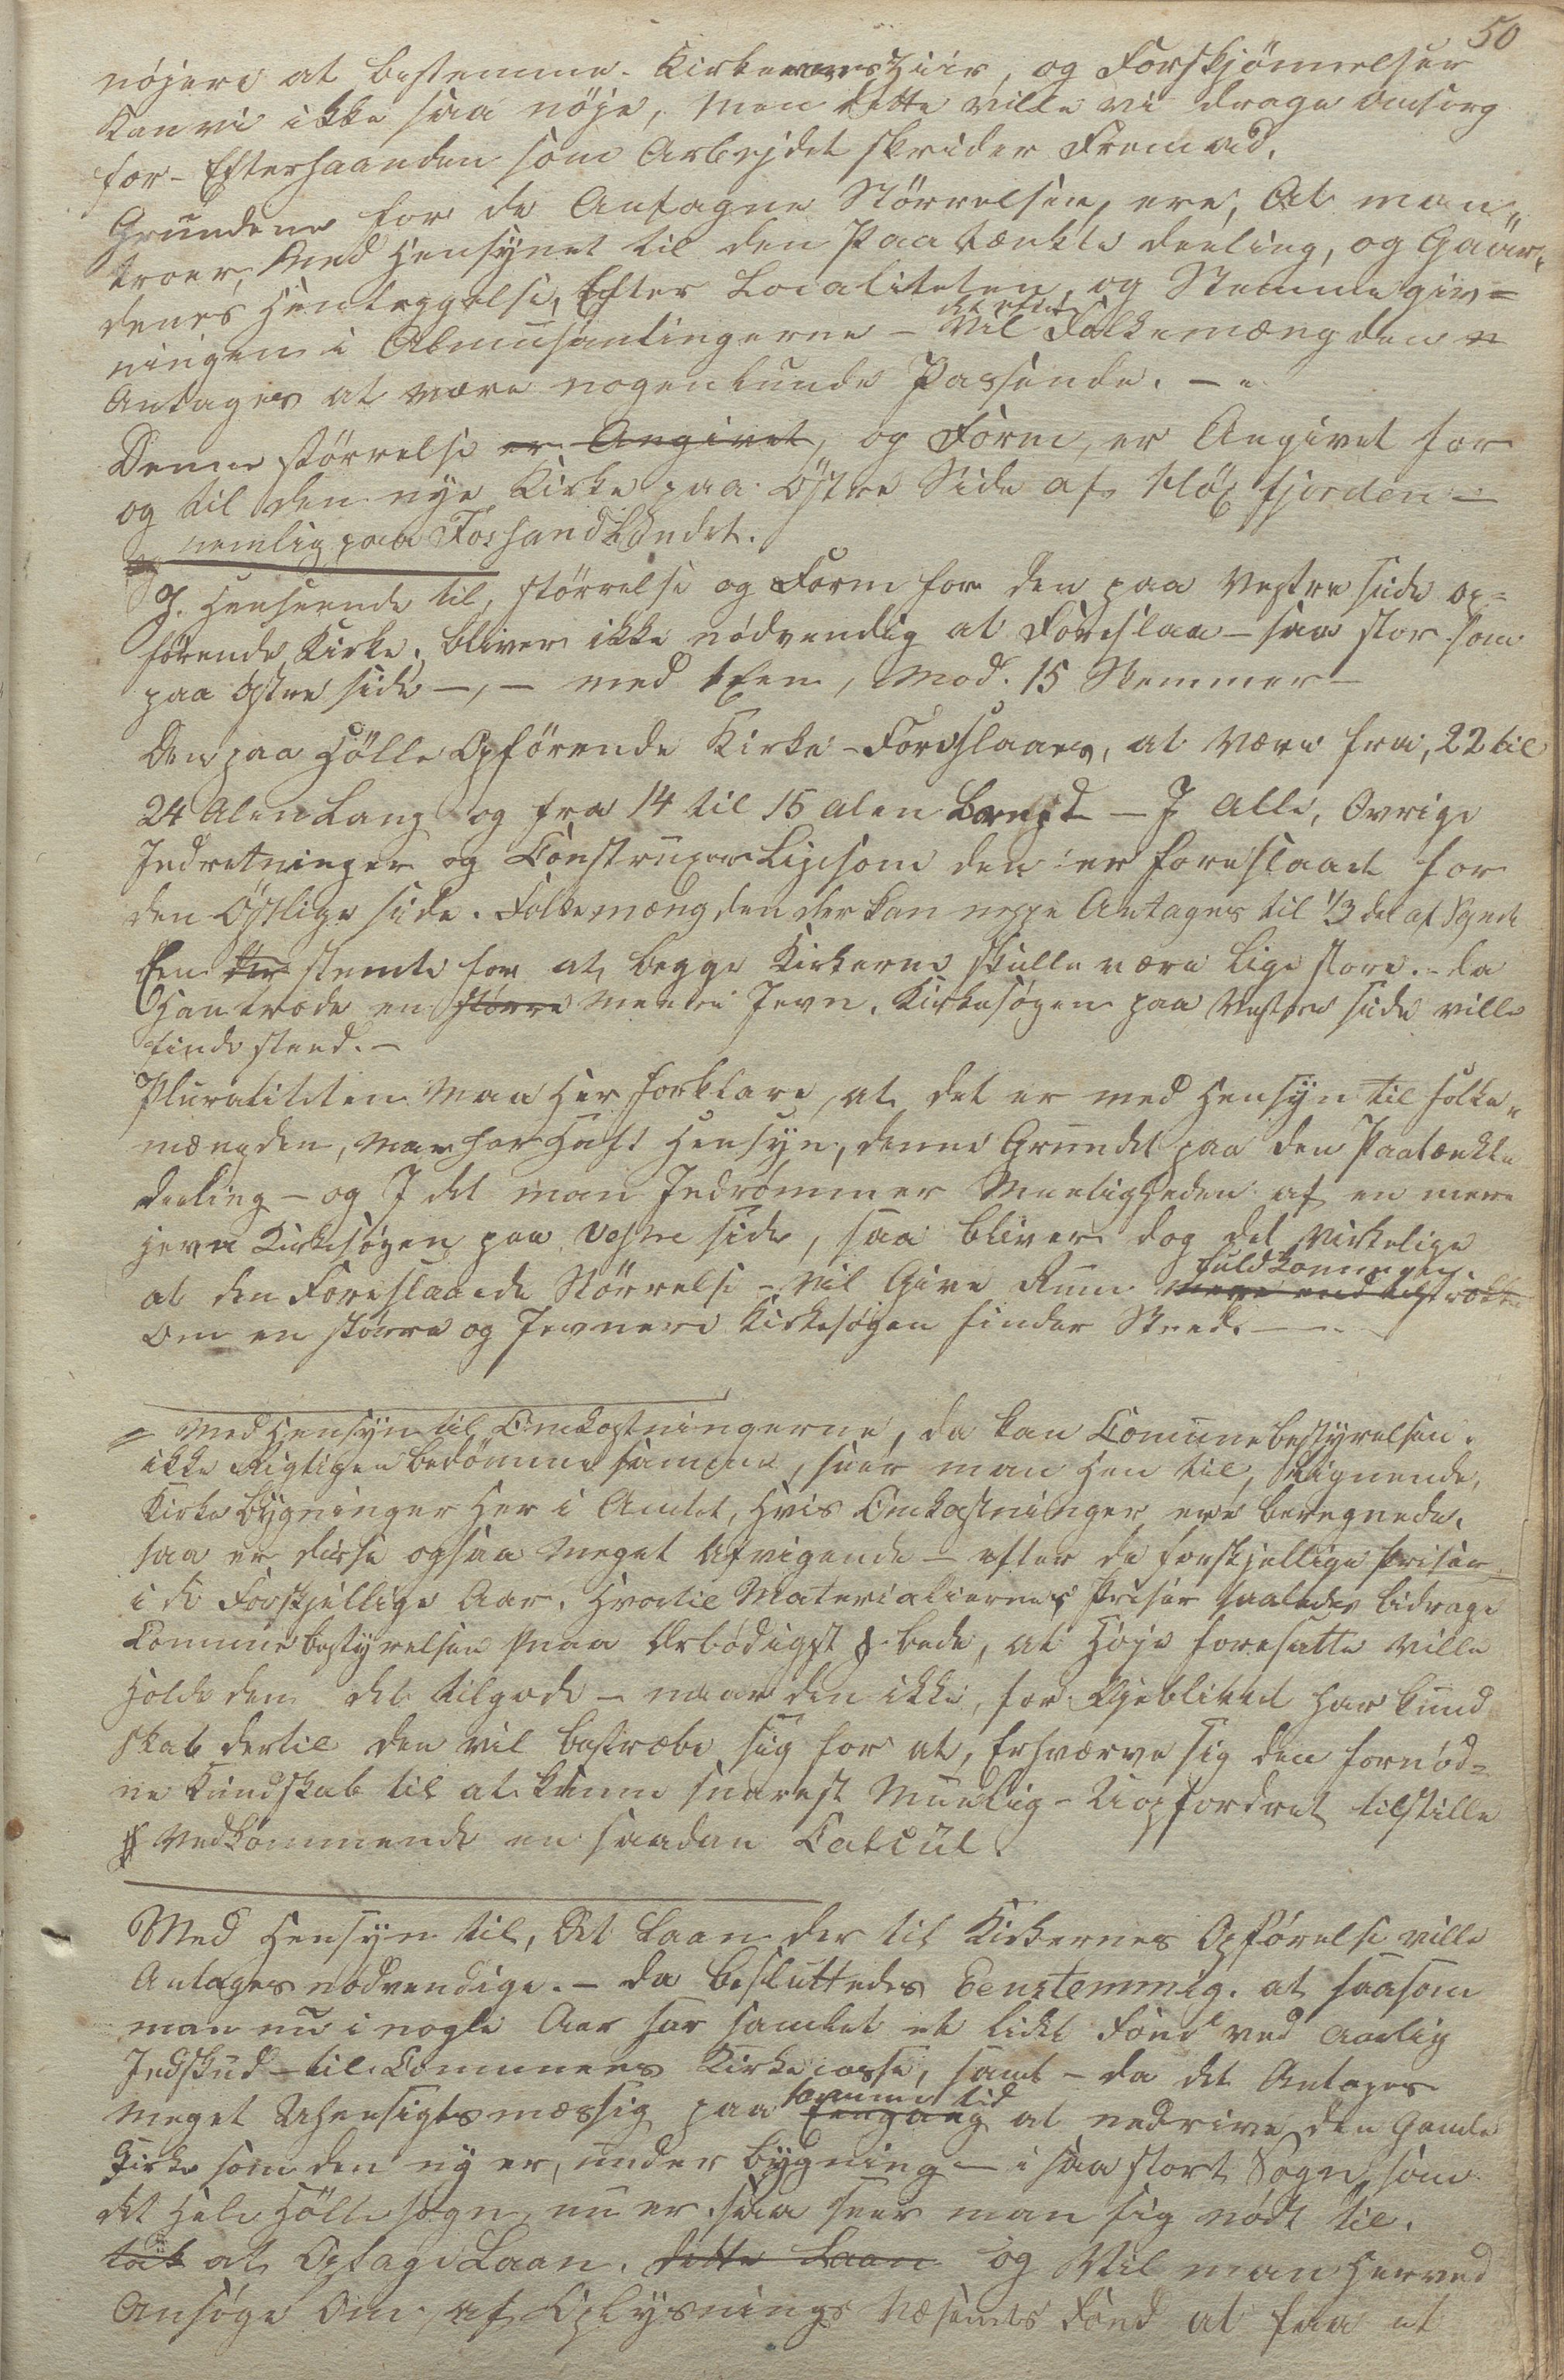 50
nöjere at bestemme. Kirkernes Ziir, og Forskjönnelser
kan vi ikke saa nöje, men dette ville vi drage omsorg
for - Efterhaanden som Arbejdet skrider Fremad.
Grundene for de Antagne Störrelser, ere, At man„
troer, Med Hensynet til den Paatænkte deeling, og Gaar„
denes Henleggelse, Efter Localiteten, og Stemmegiv=
ningen i Almusamlingerne - Vil Folkemængden
Antages at være nogenlunde Passende. -
Denne störrelse er Angivet, og Form, er Angivet for
og til den nye Kirke paa Östre Side af Högsfjorden -
nemlig paa Foshandlandet.
I. Henseende til, störrelse og Form for den paa Vestre side op=
förende Kirke, bliver ikke nödvendig at Foreslaa - saa stor som
paa östre side -, - med 1 Een, Mod. 15 Stemmer -
Den paa Hölle Opförende Kirke - Foreslaaes, at være fra, 22 til
24 Alen Lang og fra 14 til 15 alen Bred - I Alle, Ovrige
Indretninger og Construxion Ligesom den er foreslaaet for
den Östlige side. Folkemængden der kan neppe Antages til 1/3 del af Sognet
Een der stemte for at, begge Kirkerne skulle være lige store. - da
Han troede en större meere Jevn. Kirkesögen paa Vestre side ville
finde steed. -
Pluraliteten Maa Her forklare, at det er med Hensyn til folke„
mængden, man har Haft Hensyn, denne Grundet paa den Paatænkte
deeling - og I det man Indrömmer Mueligheden af en mere
jevn Kirkesögen paa Vestre side, saa bliver dog det Virkelige
at den Foreslaaede Störrelse - Vil Give Rum fuldkommen
mere end tilstrække
Om en större og Jevnere Kirkesögen finder Steed. -
Med Hensyn til Omkostningerne, da kan Comunebestyrelsen
ikke Rigtigen bedömme samme, seer man Hen til, Lignende,
Kirke bygninger Her i Amtet, Hvis Omkostninger ere beregnede,
saa er disse ogsaa Meget Afvigende - efter de forskjellige priser
i de Forskjellige Aar. Hvortil Materialiernes Priser saaledes bidrage
Commune bestyrelsen Maa Ærbödigst bede, at Höje foresatte ville
Holde den det tilgode - naar den ikke, for Öjeblikket har kund
skab dertil den vil bestræbe sig for at, Erhværve sig den fornöd=
ne Kundskab til at kunne snarest Muelig - Uopfordret tilstille
Vedkommende en saadan Calcül.
Med Hensyn til, Et Laan der til Kirkernes Opförelse ville
Antages nödvendige. - da besluttedes Eenstemmig. at saasom
man nu i nogle Aar har samlet et lidet Fond ved Aarlig
Indskud - til Communens Kirke casse, samt - da det Antages
Meget Uhensigtsmæssig paa Eengang samme tid at nedrive den Gamle
Kirke som den ny er, under bygning - i saa stort Sogn, som
det Hele Hölle sogn, nu er. saa seer man sig nödt til.
at Optage Laan. dette Laan og Vil man Herved
Ansöge Om, af Oplysnings Væsenets Fond at faa et